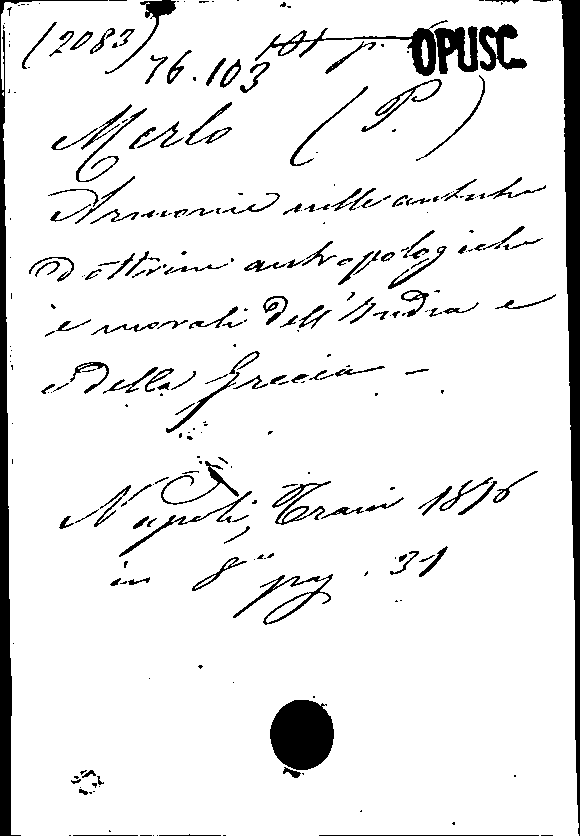 (2083)
76.103
OPUSC.
Merlo (P.)
Armonie nelle antiche
dottrine antropologiche
e morali dell'India e
della Grecia -
Napoli, Trani 1876
in 8° pag. 31